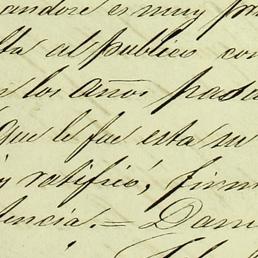 andose es muy pr
lta al publico con
n los años pasa
que le fue esta su
y ratificó, firm
tencia.= Dani